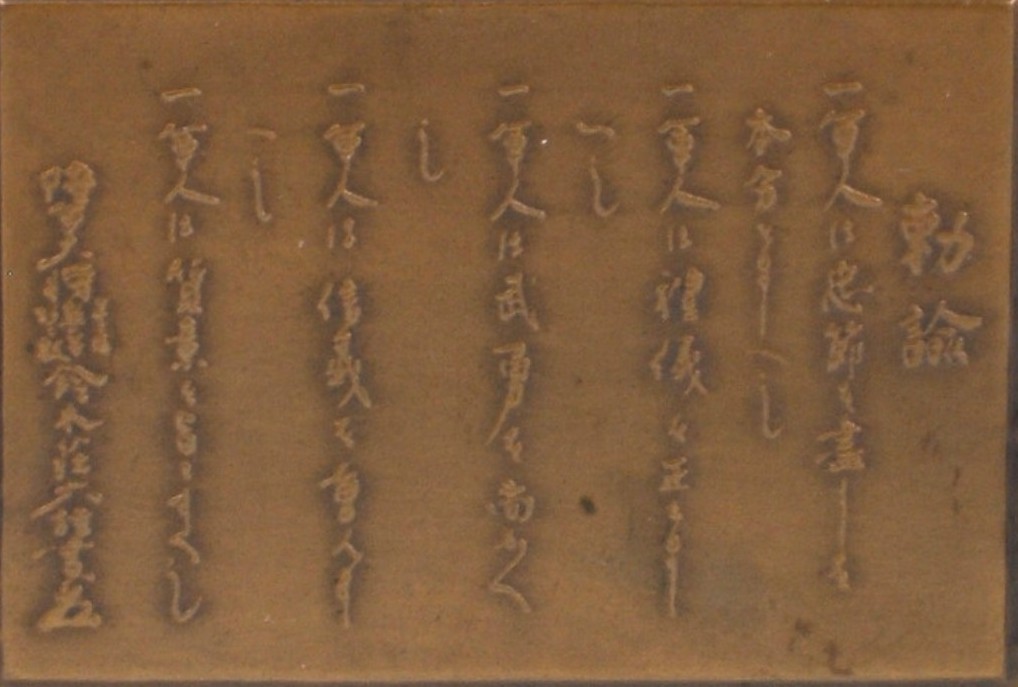 勅諭
一軍人は忠節を盡すを
本分とすへし
一軍人は禮儀を正くす
へし
一軍人は武勇を尚ふへ
し
一軍人は信義を重んす
へし
一軍人は質素を旨とすへし
陸軍大将鈴木荘六謹書